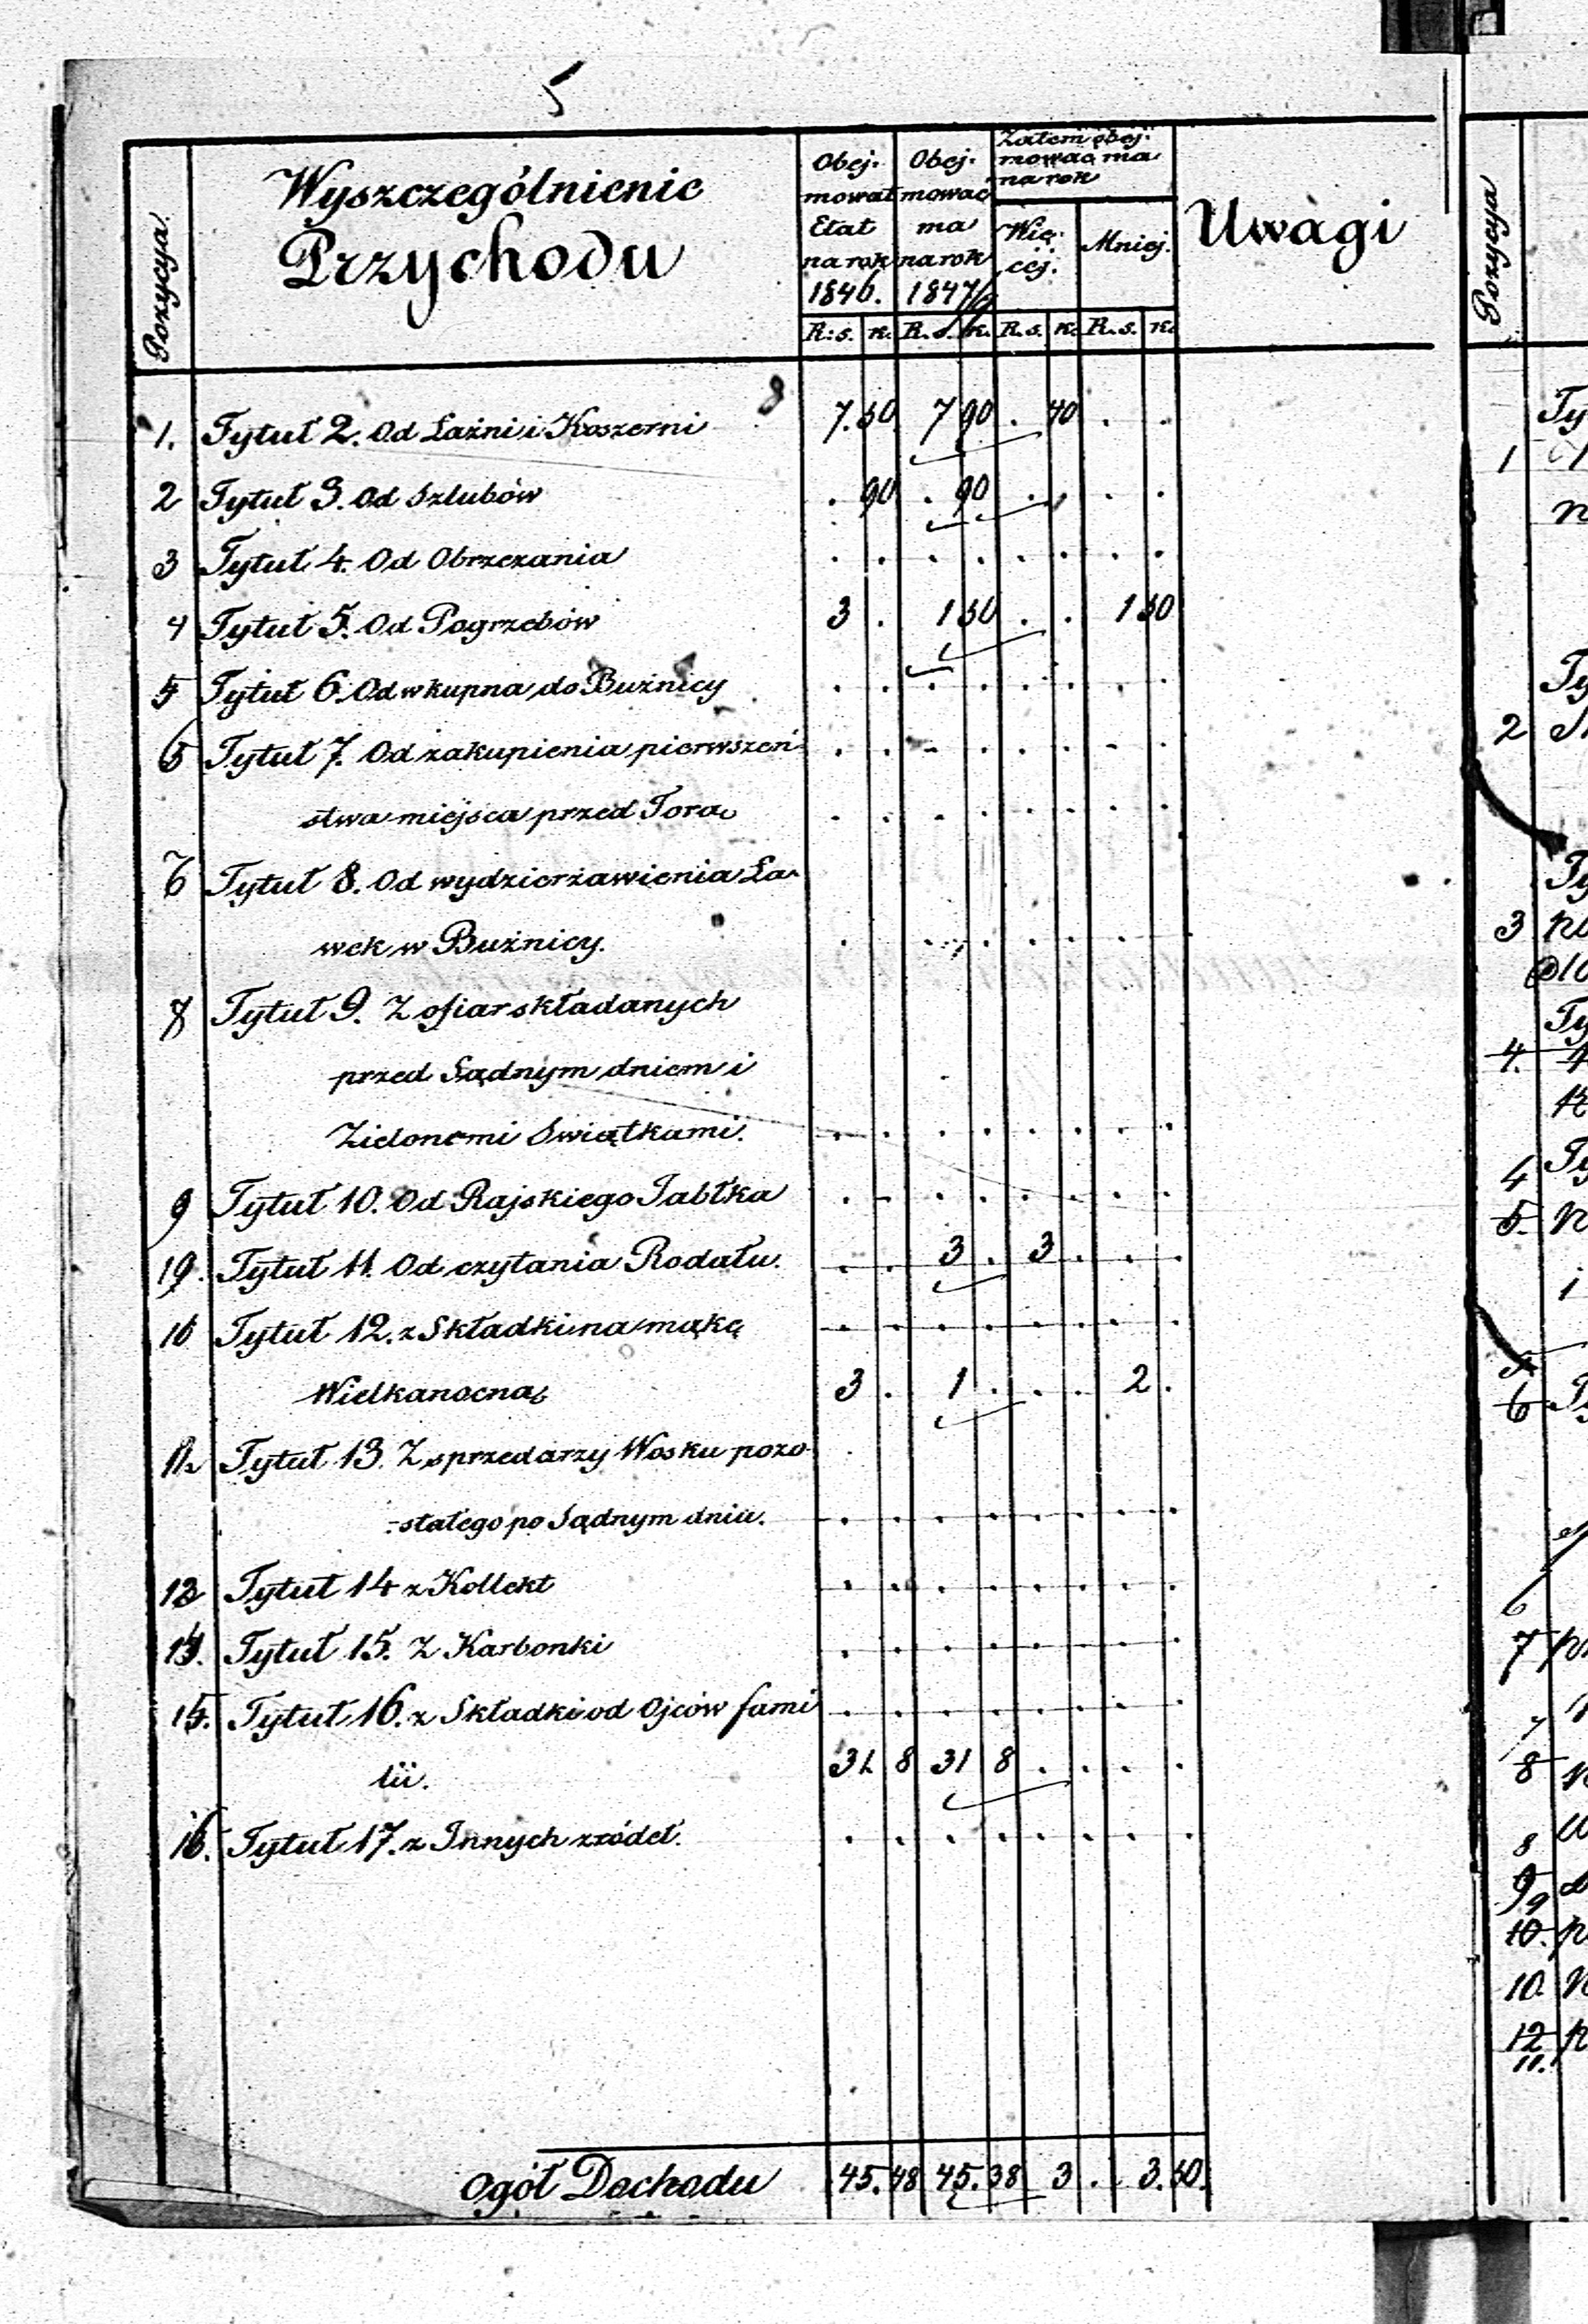 5
Pozycya
Wyszczególnienie
Przychodu
Obej-
mował
Etat
na rok
1846.
Obej-
mować
ma
na rok
1847/9
Zatem obej-
mować ma
na rok
Wię-
cej.
Mniej.
Uwagi
R: s. k. R. s. k. R. s. k. R. s. k.
1. Tytuł 2. Od Łaźni i Koszerni 7. 50 7 90 . 40 . .
2 Tytuł 3. Od Szlubów . 90 . 90 . . . .
3 Tytuł 4. Od Obrzezania . . . . . . . .
4 Tytuł 5. Od Pogrzebów 3 . 1 50 . . 1 50
5 Tytuł 6. Od wkupna do Bużnicy . . . . . . . .
6 Tytuł 7. Od zakupienia pierwszeń- . . . . . . . .
stwa miejsca przed Torą . . . . . . . .
7 Tytuł 8. Od wydzierżawienia Ła-
wek w Bużnicy. . . . . . . .
8 Tytuł 9. Z ofiar składanych
przed Sądnym dniem i
Zielonemi Swiątkami. . . . . . . . .
9 Tytuł 10. Od Rajskiego Jabłka . . . . . . . .
10. Tytuł 11. Od czytania Rodału. . . 3 . 3 . . .
Tytuł 12. z Składki na mąkę . . . . . . . .
Wielkanocną 3 . 1 . . . 2 .
Tytuł 13. Z sprzedarzy Wosku pozo-
-stałego po Sądnym dniu. . . . . . . . .
13 Tytuł 14 z Kollekt . . . . . . . .
14. Tytuł 15. Z Karbonki . . . . . . . .
15. Tytuł 16. z Składki od Ojców fami . . . . . . . .
lii. 31 8 31 8 . . . .
16. Tytuł 17. z Innych zródeł. . . . . . . . .
Ogół Dochodu 45. 48 45. 38 3 . 3. 50.
Pozycya
1
2
3
4.
4
5.
6
6
7
8
8
9
9
10.
10.
12
11.